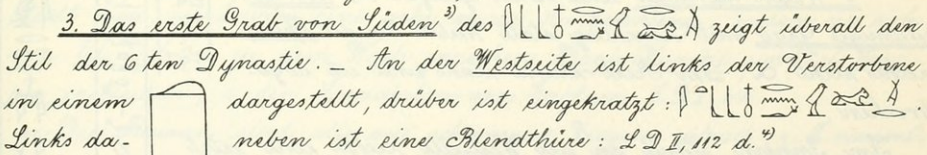 3. Das erste Grab von Süden ³⁾ des zeigt überall den
Stil der 6ten Dynastie. _ An der Westseite ist links der Verstorbene
in einem dargestellt, drüber ist eingekratzt: .
Links da- neben ist eine Blendthüre: L D II, 112 d. ⁴⁾